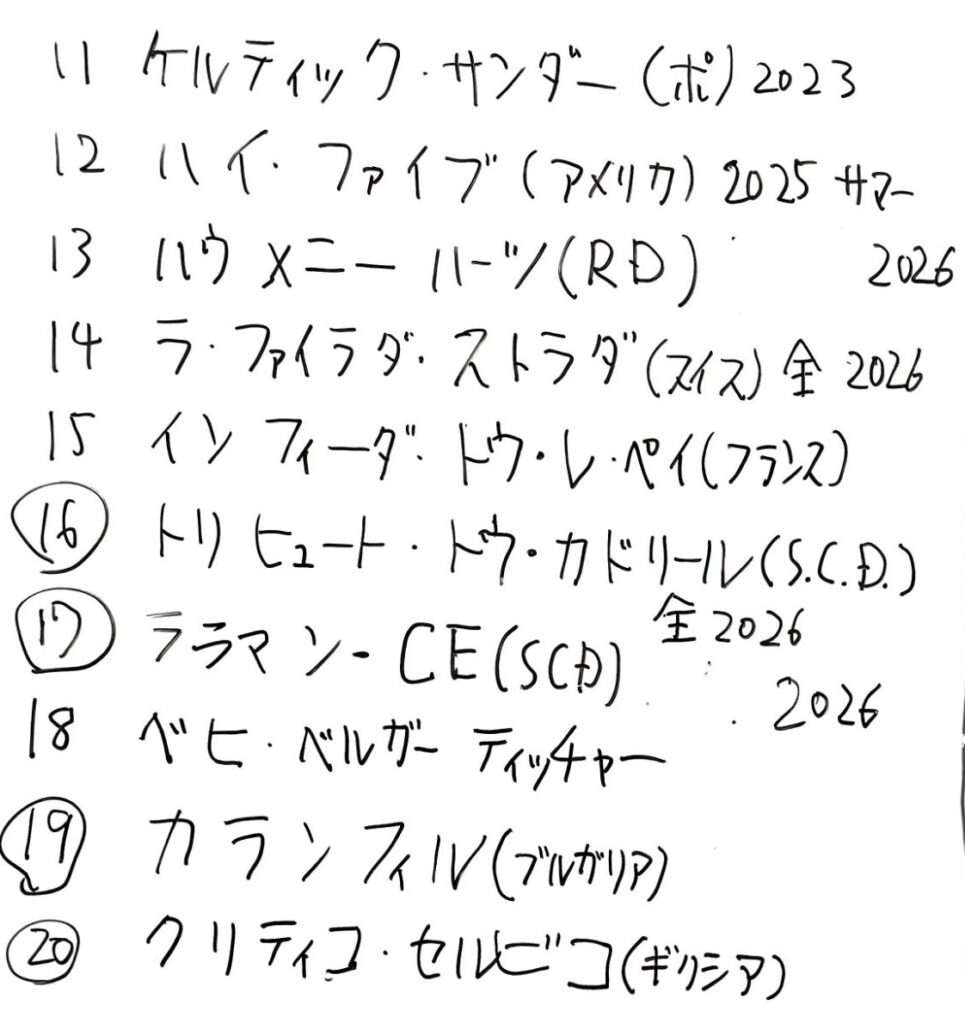 11 ケルティック・サンダー(ポ)2023
12 ハイ・ファイブ(アメリカ)2025 サマー
13 ハウメニーハーツ(RD) 2026
14 ラ・ファイラダ・ストラダ(スイス)全 2026
15 インフィーダ・ドゥ・レ・ペイ(フランス)
⑯ トリビュート・ドゥ・カドリール(S.C.D.)
全 2026
⑰ ララマン・CE(SCD)
2026
18 ベヒ・ベルガー ティッチャー
⑲ カランフィル(ブルガリア)
⑳ クリティコ・セルビコ(ギリシア)